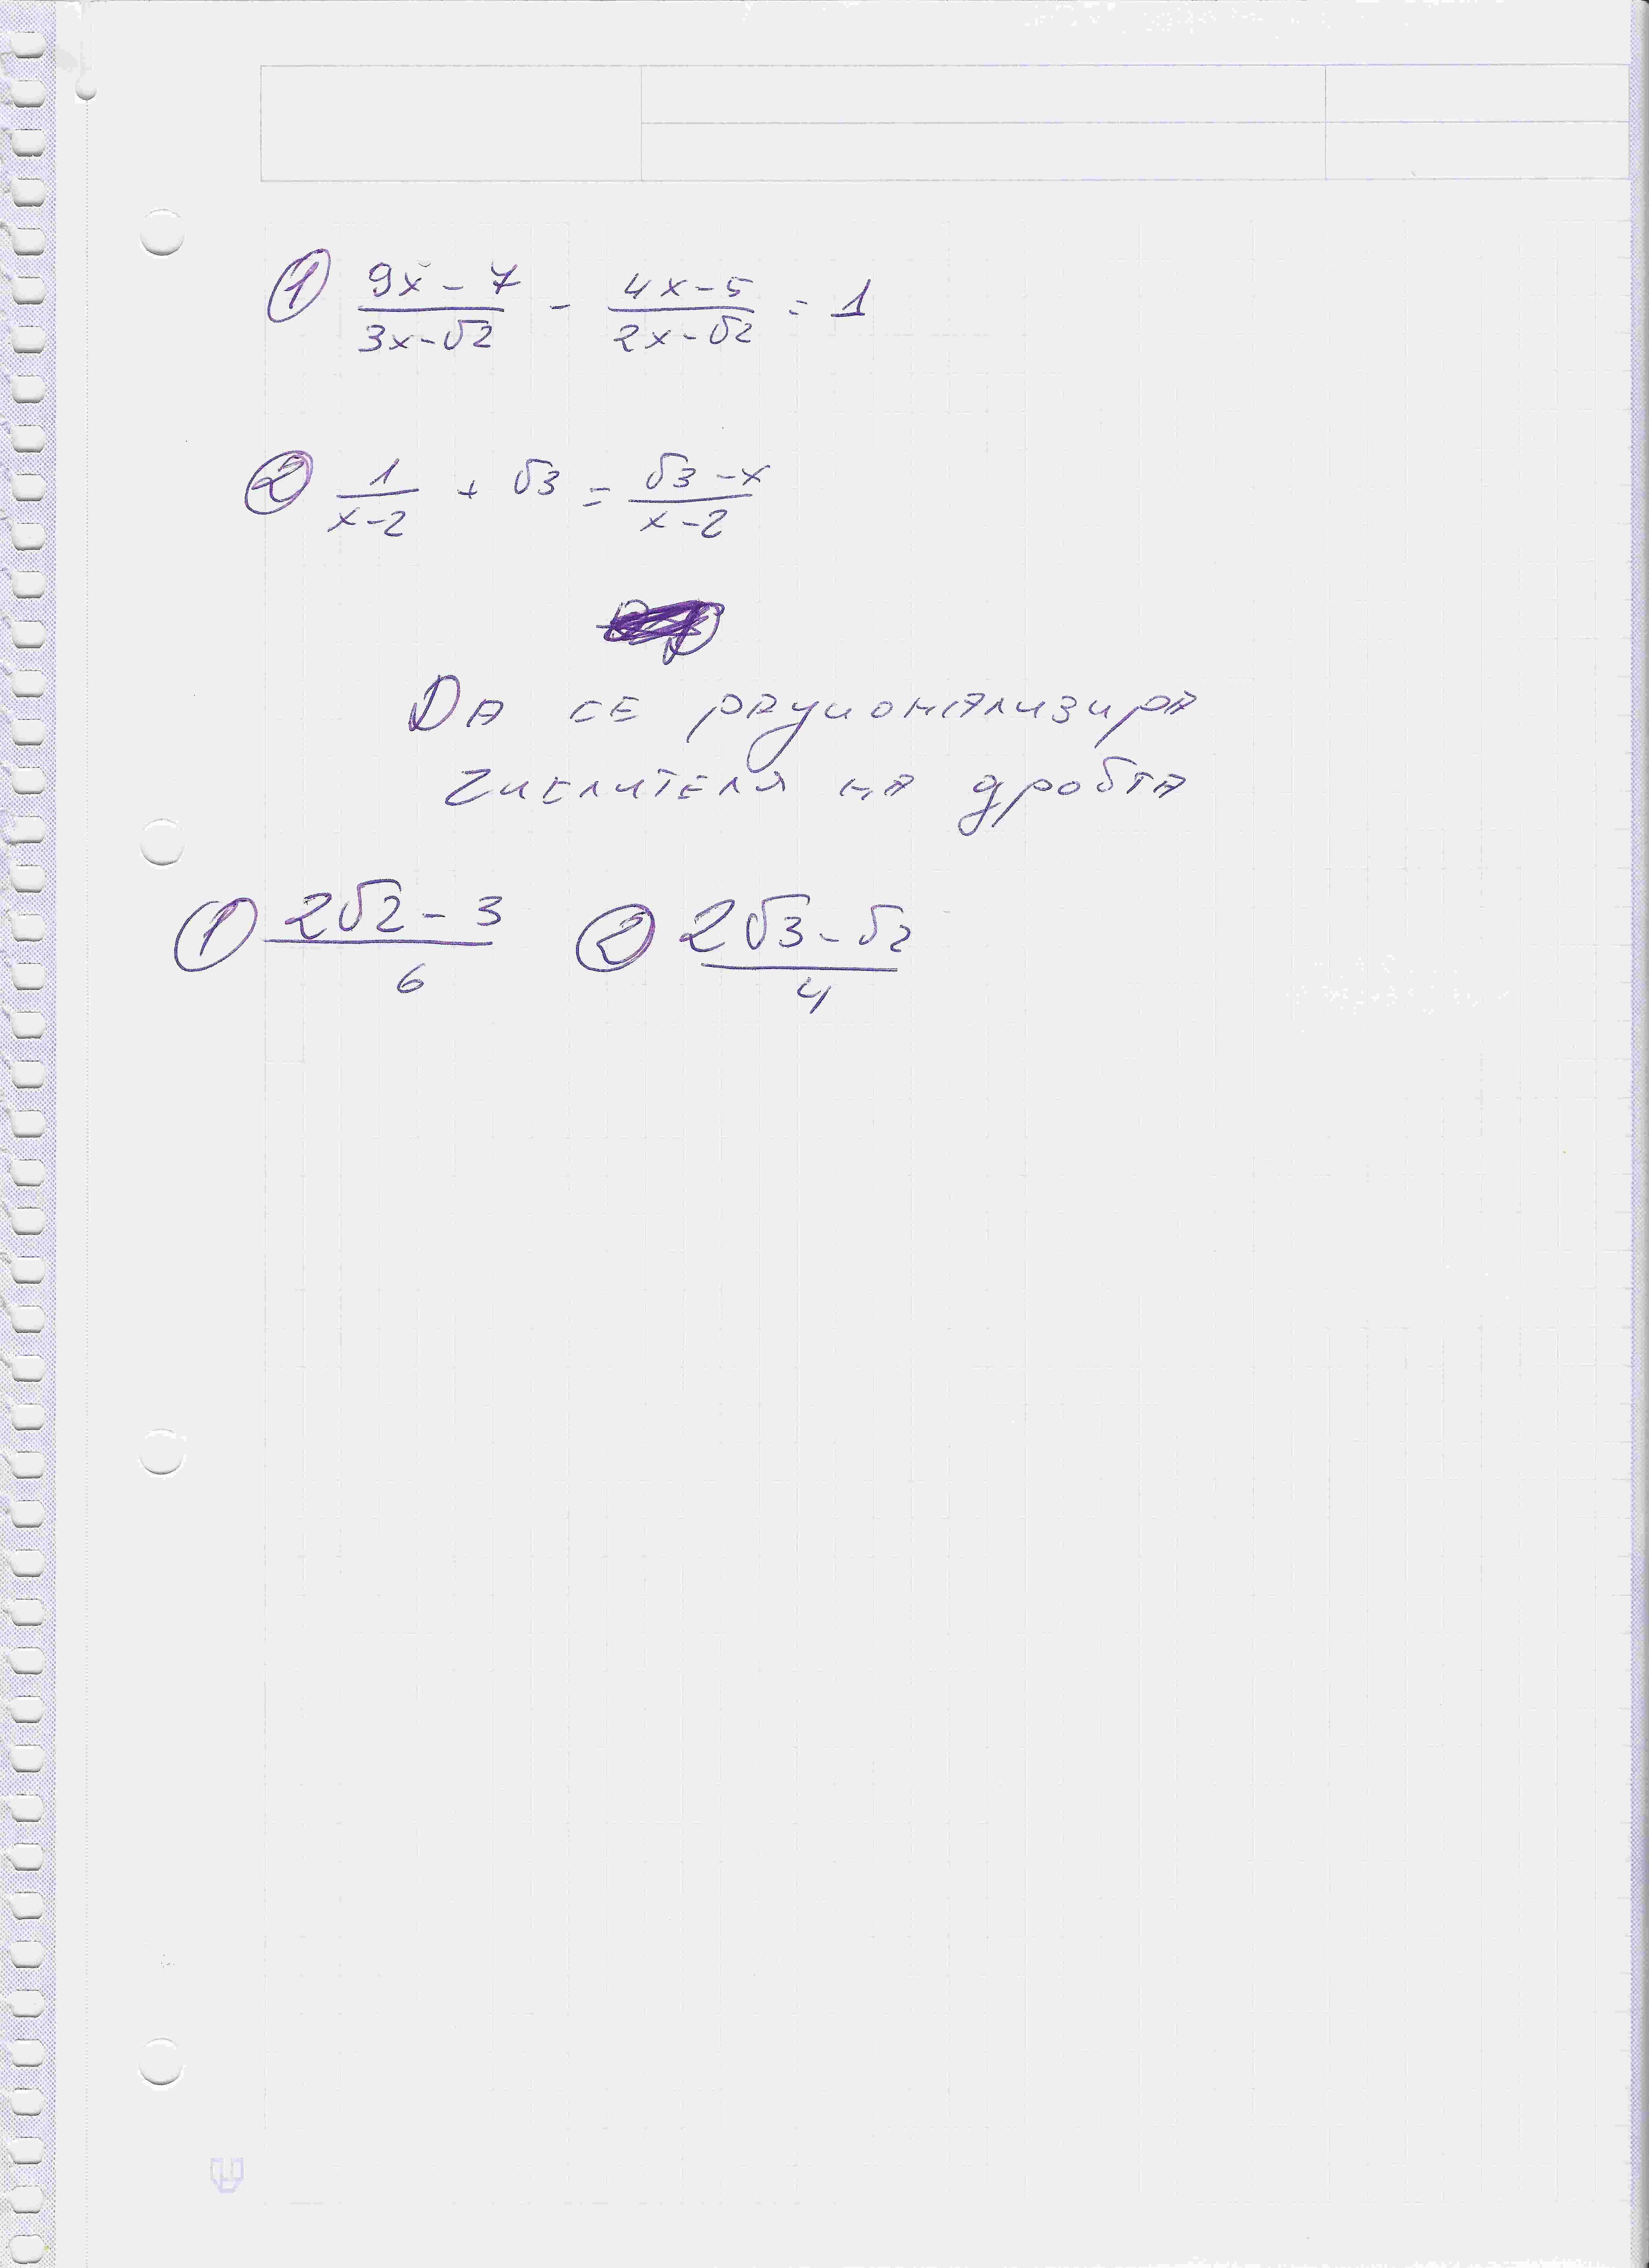 ① (9x - 7)/(3x-√2) - (4x-5)/(2x-√2) = 1
② 1/(x-2) + √3 = (√3-x)/(x-2)
Да се рационализира
числителя на дробта
① (2√2 - 3)/6 ② (2√3-√2)/4